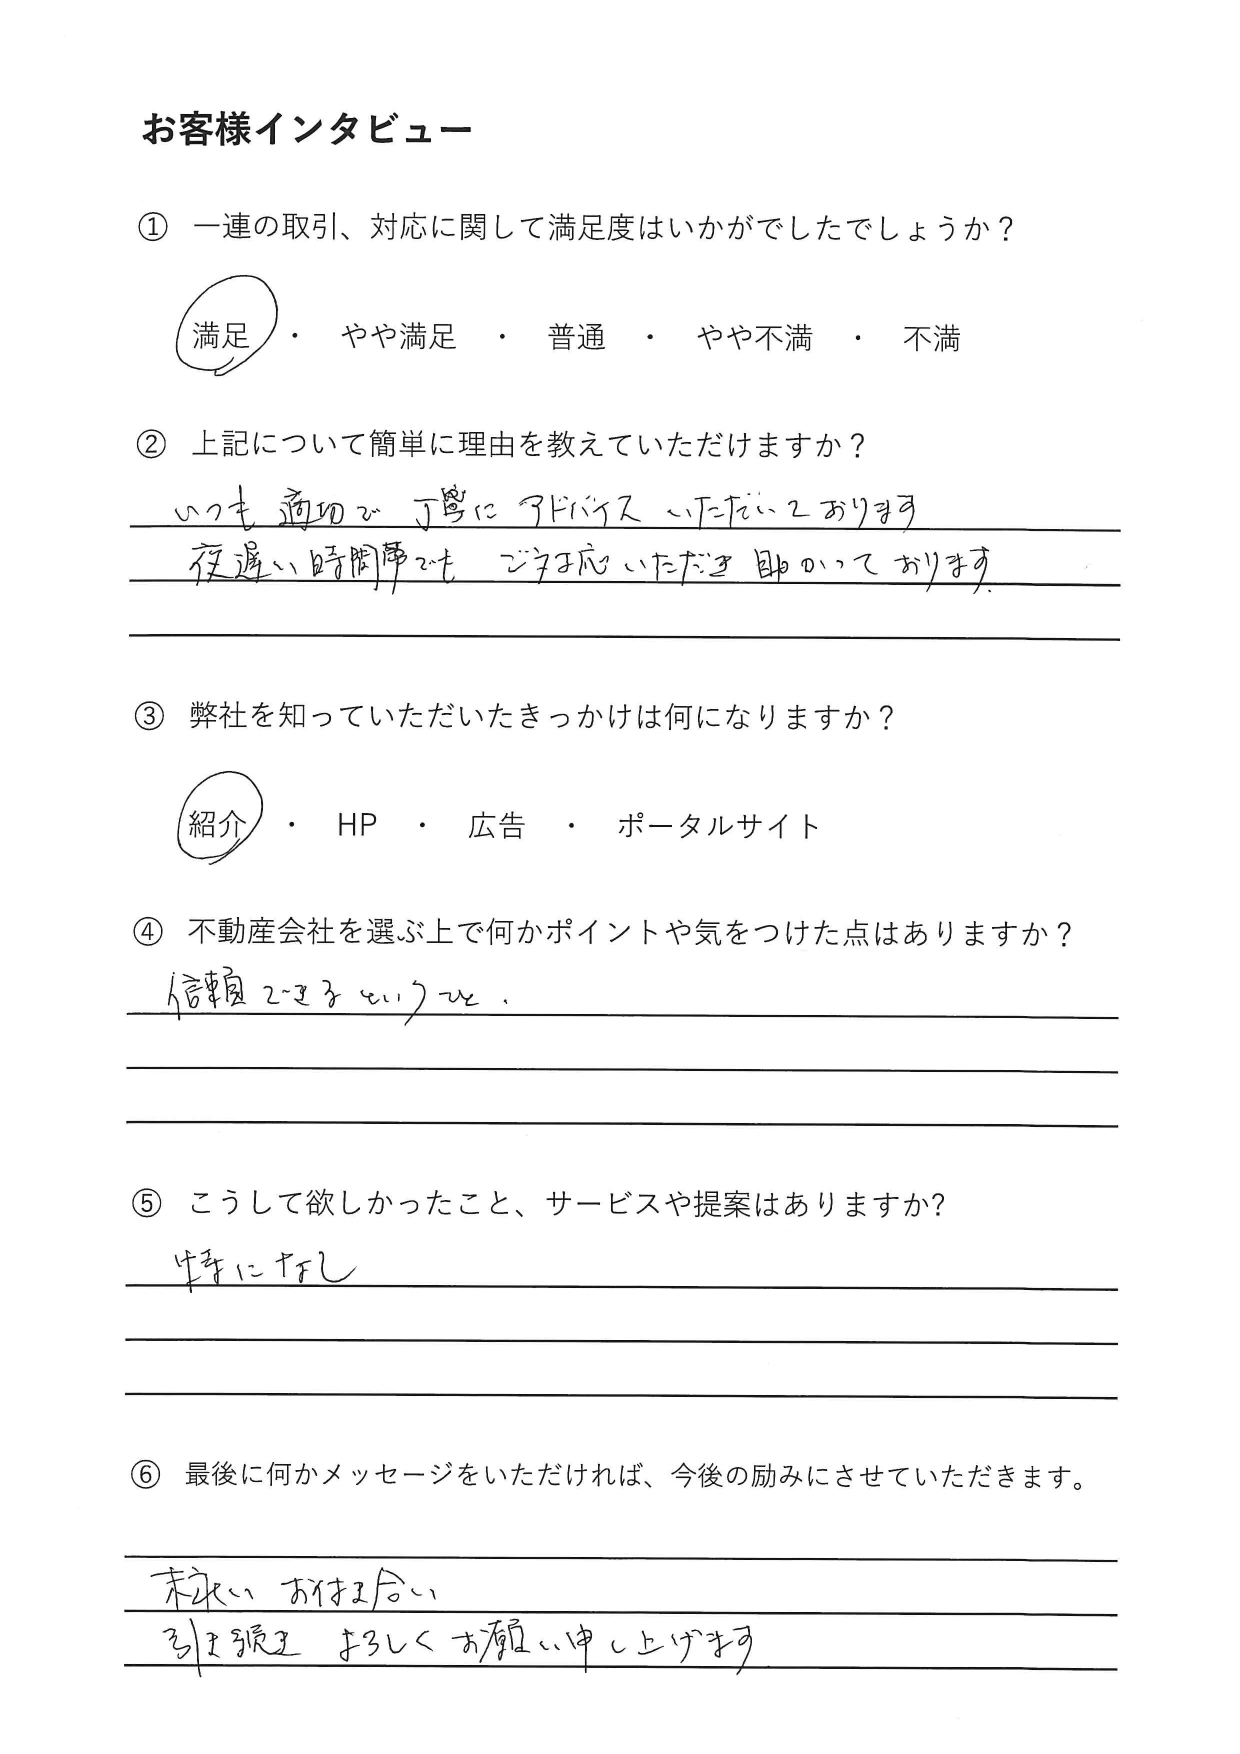 お客様インタビュー
① 一連の取引、対応に関して満足度はいかがでしたでしょうか？
満足 ・ やや満足 ・ 普通 ・ やや不満 ・ 不満
② 上記について簡単に理由を教えていただけますか？
いつも 適切で 丁寧に アドバイス いただいております
夜遅い時間帯でも ご対応いただき 助かっております.
③ 弊社を知っていただいたきっかけは何になりますか？
紹介 ・ HP ・ 広告 ・ ポータルサイト
④ 不動産会社を選ぶ上で何かポイントや気をつけた点はありますか？
信頼できるということ.
⑤ こうして欲しかったこと、サービスや提案はありますか?
特になし
⑥ 最後に何かメッセージをいただければ、今後の励みにさせていただきます。
末永い お付き合い
引き続き よろしくお願い申し上げます